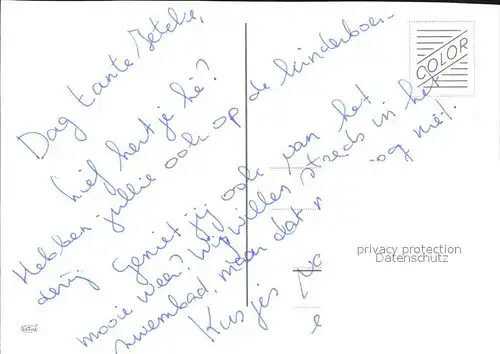 Dag tante Jetske,
lief hertje hè?
Hebben jullie ook op de kinderboer-
derij Geniet jij ook van het
mooie weer? Wij willen steeds in het
zwembad, maar dat nog niet.
Kusjes
COLOR
privacy protection
Datenschutz